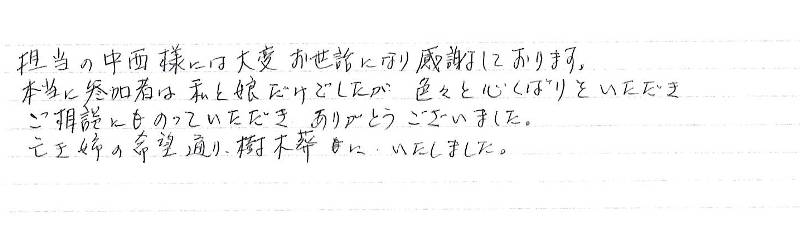 担当の中西様には大変お世話になり感謝しております。
本当に参加者は私と娘だけでしたが 色々と心くばりをいただき
ご相談にものっていただき ありがとうございました。
亡き姉の希望通り、樹木葬に いたしました。